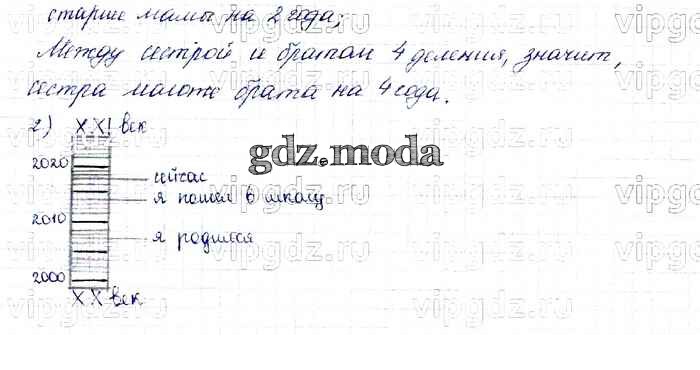 старше мамы на 2 года;
Между сестрой и братом 4 деления, значит,
сестра моложе брата на 4 года.
2) XXI век
gdz.moda
2020
сейчас
я пошел в школу
2010
я родился
2000
XX век
vipgdz.ru